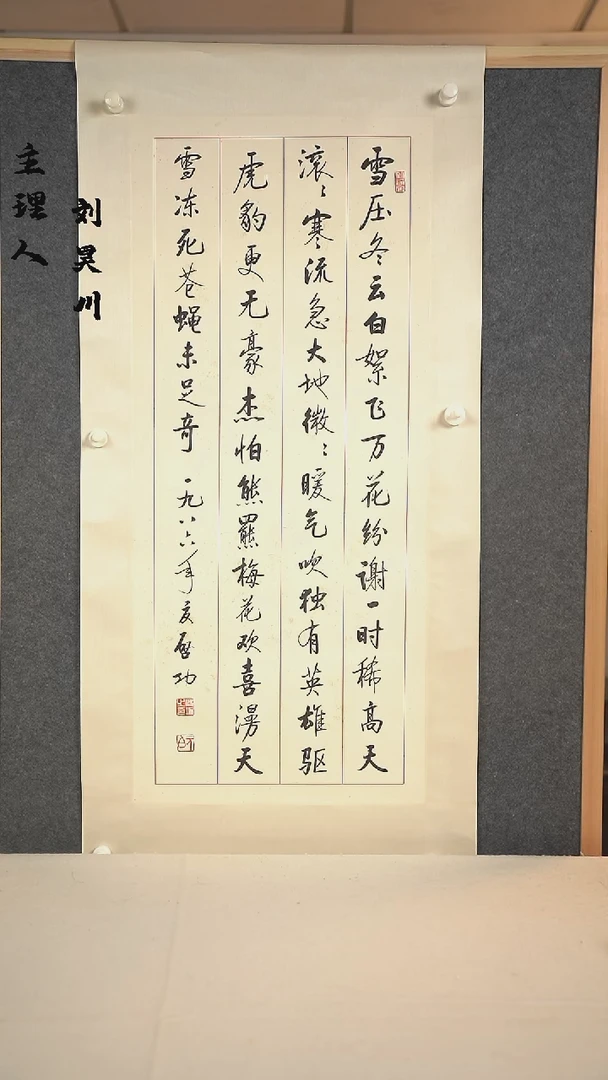 雪压冬云白絮飞万花纷谢一时稀高天
滚〻寒流急大地微〻暖气吹独有英雄驱
虎豹更无豪杰怕熊罴梅花欢喜漫天
雪冻死苍蝇未足奇 一九八六年夏启功
主理人
刘昊川